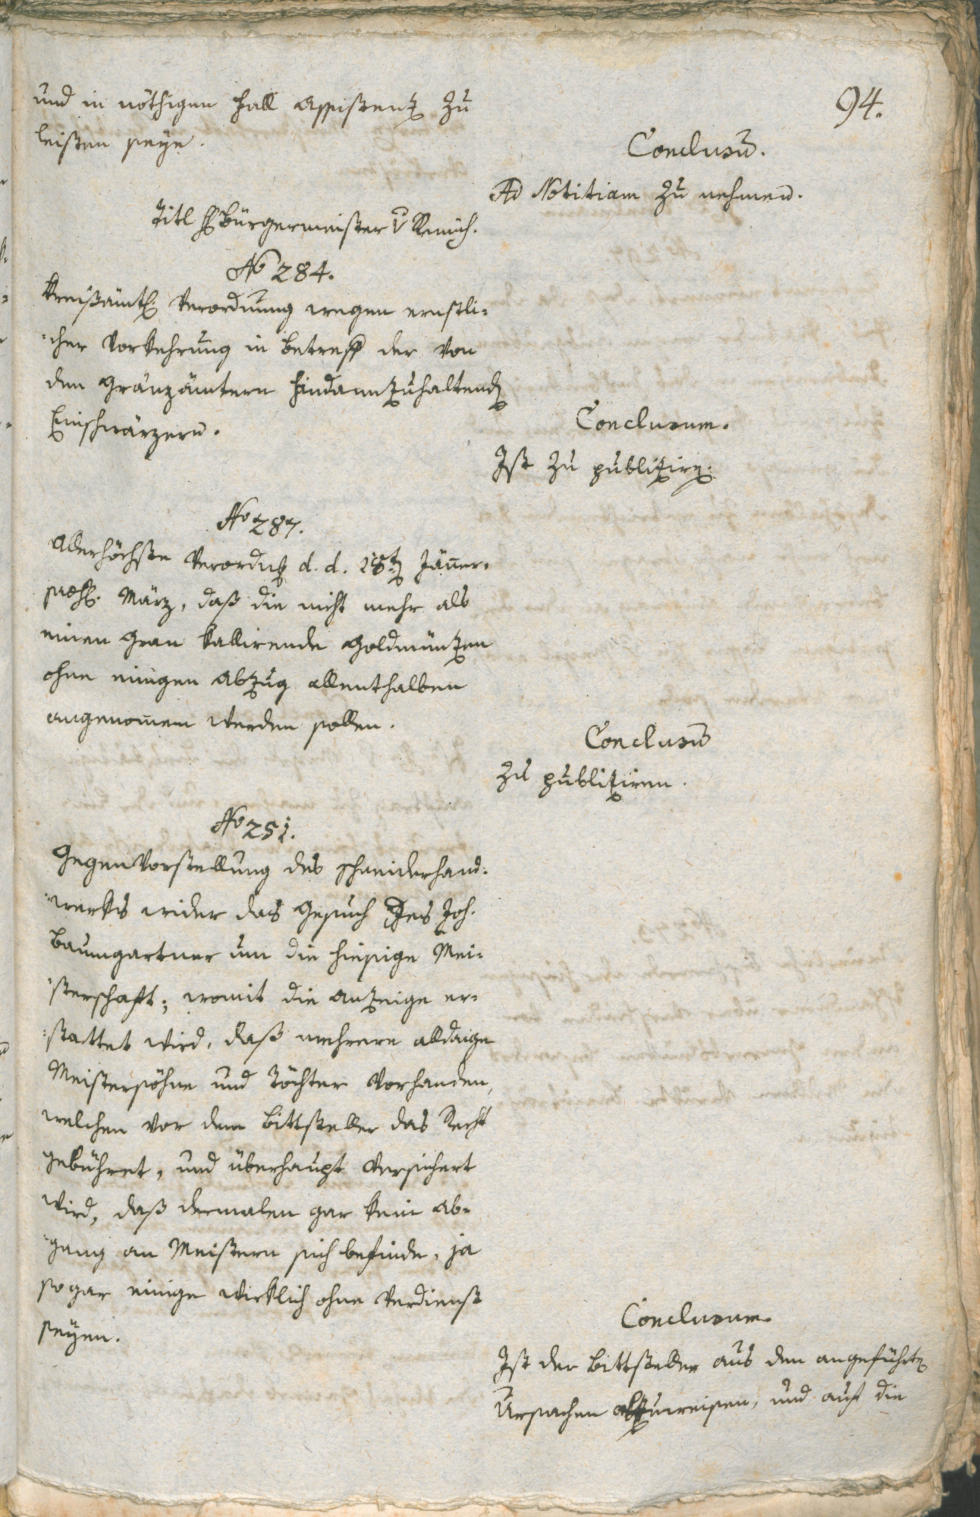 94.
und in nöthigen Fall Assistenz zu
leisten seye.
Conclusū.
Ad Notitiam zu nehmen.
Titl H Bürgermeister v
No 284.
Kreisämtl. Verordnung wegen ernstli-
-cher Vorkehrung in betreff der von
den Gränzämtern hindannzuhaltend
Einschwärzern.
Conclusum.
Ist zu publiziren.
No 287.
Allerhöchste Verordng d. d. Jänner.
März, daß die nicht mehr als
einen Gran kallirende Goldmünzen
ohne einigen Abzug allenthalben
angenom̄en werden sollen.
Conclusū
Zu publiziren.
No 251.
Gegenvorstellung des Schneiderhand-
-werks wider das Gesuch des Joh.
Baumgartner um die hiesige Mei-
-sterschaft; womit die Anzeige er-
-stattet wird, daß mehrere alldaige
Meistersöhne und Töchter vorhanden,
welchen vor dem Bittsteller das Recht
gebühret, und überhaupt versichert
wird, daß dermalen gar kein Ab-
-gang an Meistern sich befinde, ja
sogar einige wirklich ohne Verdienst
seyen.
Conclusum
Ist der Bittsteller aus den angeführt
Ursachen abzuweisen, und auf die